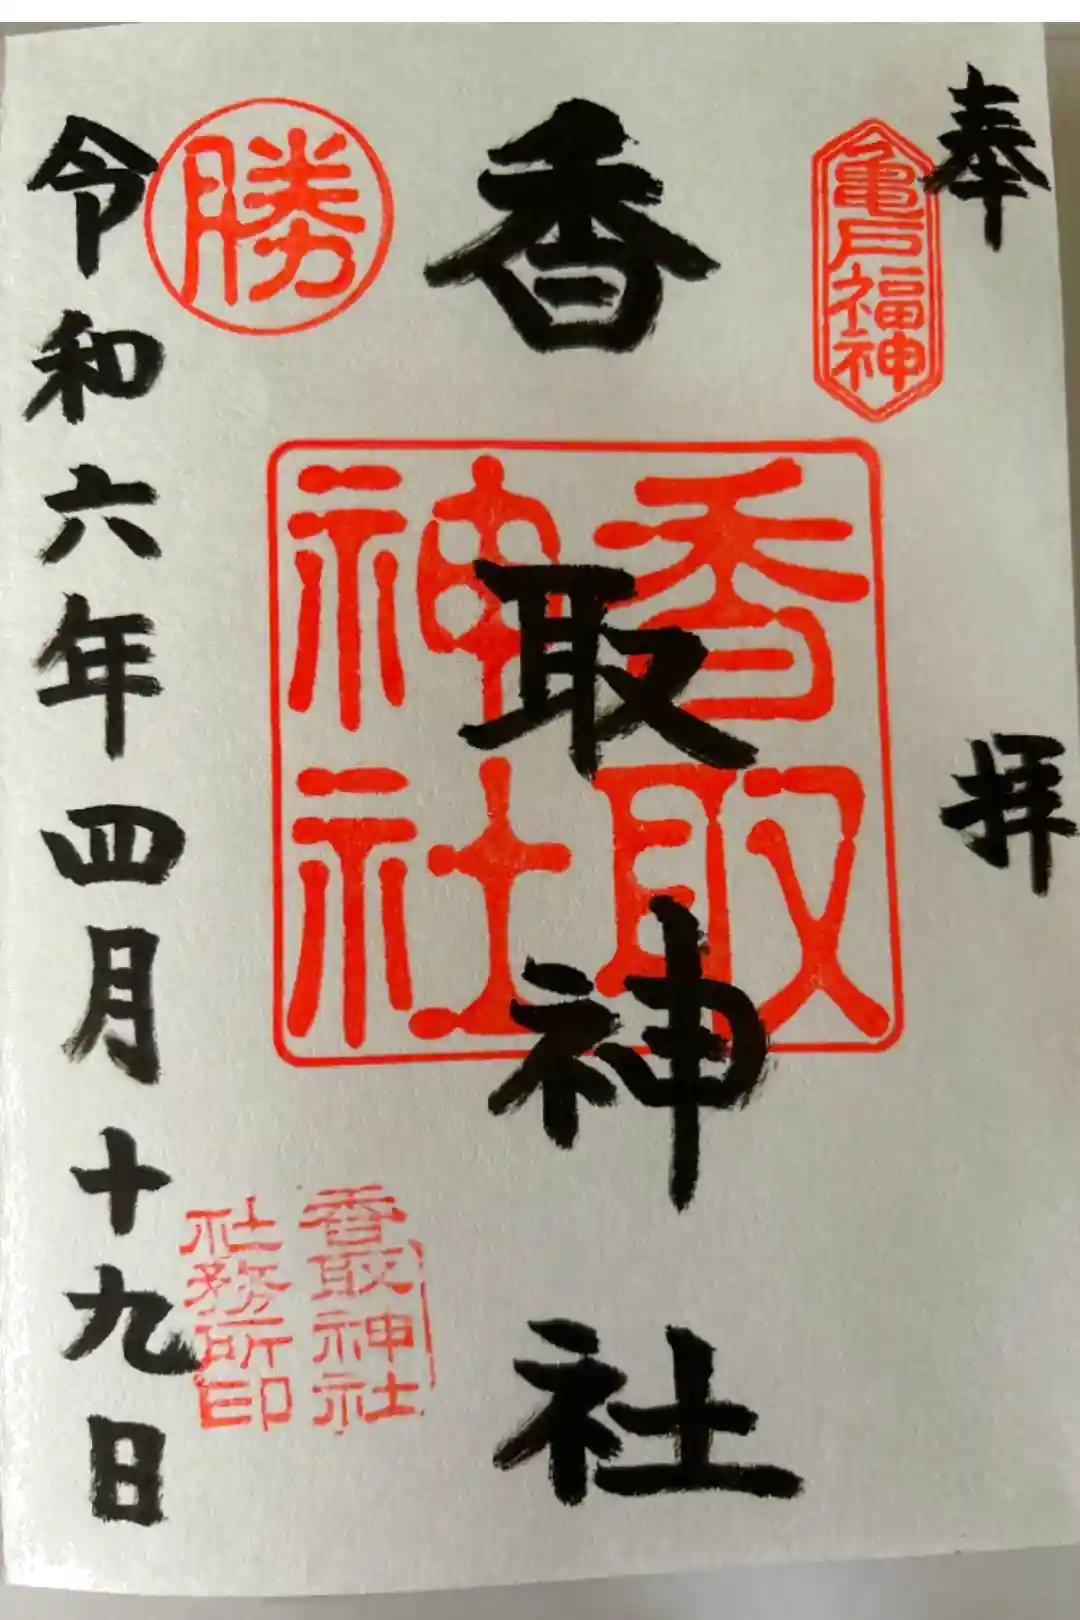 奉拝
亀戸福神
香取神社
香取
神社
勝
香取神社
社務所印
令和六年四月十九日